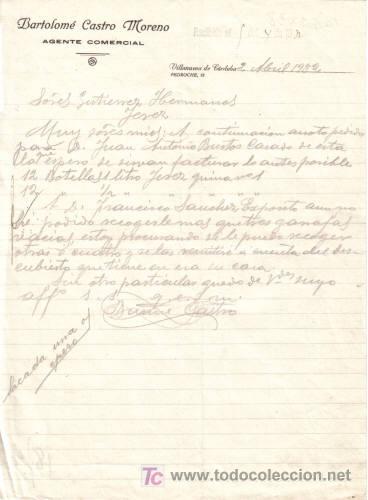 Bartolomé Castro Moreno
AGENTE COMERCIAL
Villanueva de Córdoba 2 Abril 1932
PEDROCHE, 11
Sóres Gutierrez Hermanos
Jerez
Muy sóres mios: A continuacion anoto pedido
para D. Juan Antonio Bustos Casado de esta
espero se sirvan facturar lo antes posible
12 Botellas 1 litro Jerez quina
12 " 1/2 " " " "
A D. Francisco Sanchez Exposito aun no
he podido recogerle mas que tres garrafas
vacias, estoy procurando si le puedo recoger
otras o cuatro y se las remitiré a cuenta del des-
cubierto que tiene en esa su casa
Sin otro particular quedo de Vdes suyo
affº s. s. q. e. s. m.
Castro
sacada una
todocoleccion.net